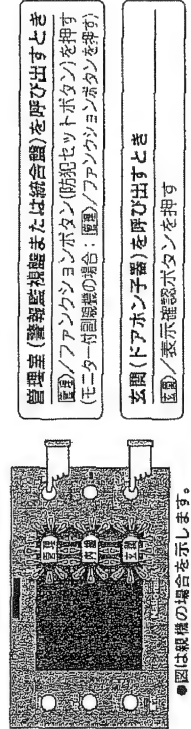 管理室(警報監視盤または統合盤)を呼び出すとき
管理/ファンクションボタン(防犯セットボタン)を押す
(モニター付副親機の場合：管理/ファンクションボタンを押す)
玄関(ドアホン子器)を呼び出すとき
玄関/表示確認ボタンを押す
管理
内線
玄関
●図は親機の場合を示します。